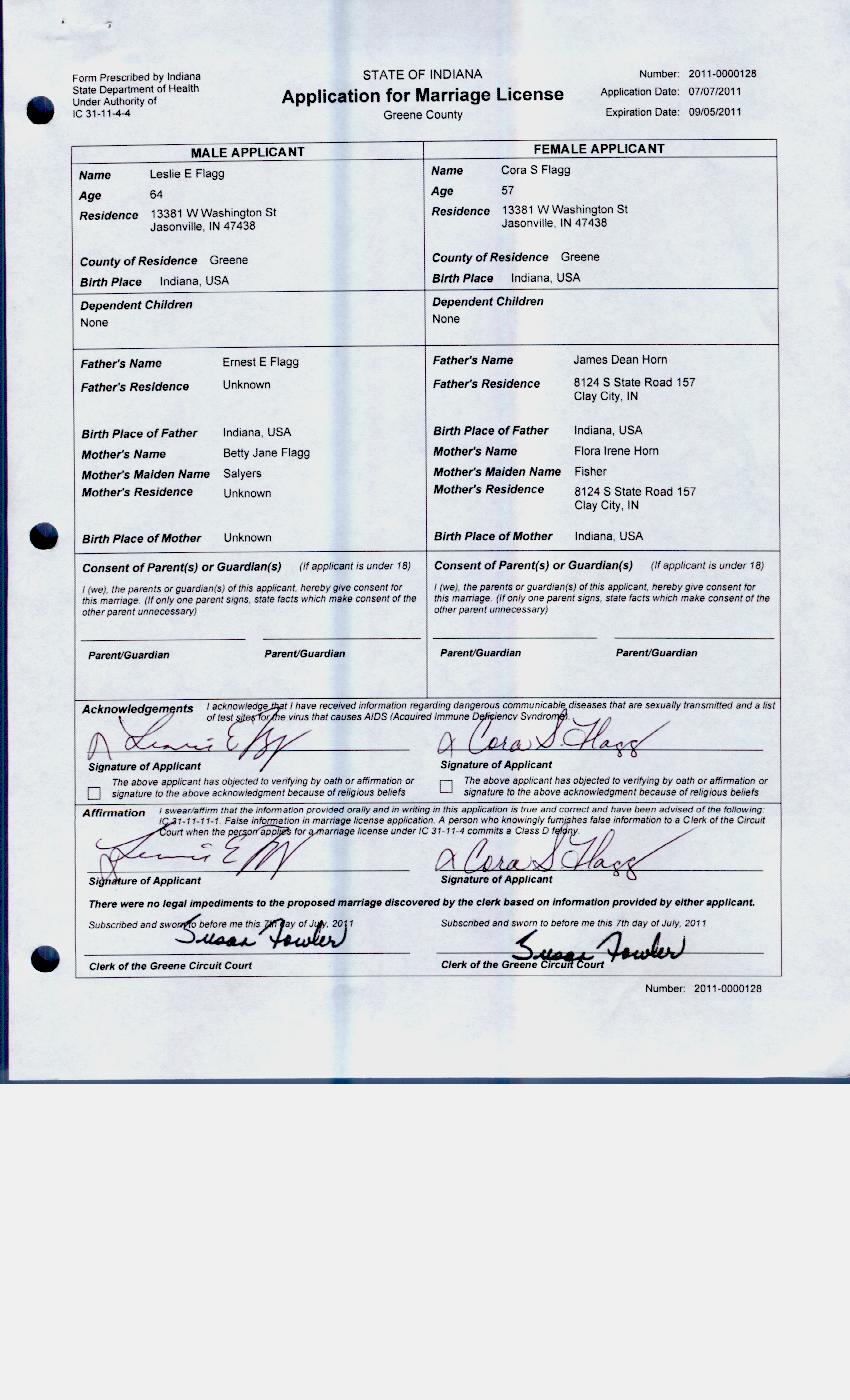 Form Prescribed by Indiana
State Department of Health
Under Authority of
IC 31-11-4-4
STATE OF INDIANA
Application for Marriage License
Greene County
Number: 2011-0000128
Application Date: 07/07/2011
Expiration Date: 09/05/2011
MALE APPLICANT
Name Leslie E Flagg
Age 64
Residence 13381 W Washington St
Jasonville, IN 47438
County of Residence Greene
Birth Place Indiana, USA
Dependent Children
None
Father's Name Ernest E Flagg
Father's Residence Unknown
Birth Place of Father Indiana, USA
Mother's Name Betty Jane Flagg
Mother's Maiden Name Salyers
Mother's Residence Unknown
Birth Place of Mother Unknown
Consent of Parent(s) or Guardian(s) (If applicant is under 18)
I (we), the parents or guardian(s) of this applicant, hereby give consent for
this marriage. (If only one parent signs, state facts which make consent of the
other parent unnecessary)
Parent/Guardian Parent/Guardian
FEMALE APPLICANT
Name Cora S Flagg
Age 57
Residence 13381 W Washington St
Jasonville, IN 47438
County of Residence Greene
Birth Place Indiana, USA
Dependent Children
None
Father's Name James Dean Horn
Father's Residence 8124 S State Road 157
Clay City, IN
Birth Place of Father Indiana, USA
Mother's Name Flora Irene Horn
Mother's Maiden Name Fisher
Mother's Residence 8124 S State Road 157
Clay City, IN
Birth Place of Mother Indiana, USA
Consent of Parent(s) or Guardian(s) (If applicant is under 18)
I (we), the parents or guardian(s) of this applicant, hereby give consent for
this marriage. (If only one parent signs, state facts which make consent of the
other parent unnecessary)
Parent/Guardian Parent/Guardian
Acknowledgements I acknowledge that I have received information regarding dangerous communicable diseases that are sexually transmitted and a list
of test sites for the virus that causes AIDS (Acquired Immune Deficiency Syndrome).
Cora S. Flagg
Signature of Applicant Signature of Applicant
The above applicant has objected to verifying by oath or affirmation or
signature to the above acknowledgment because of religious beliefs
The above applicant has objected to verifying by oath or affirmation or
signature to the above acknowledgment because of religious beliefs
Affirmation I swear/affirm that the information provided orally and in writing in this application is true and correct and have been advised of the following:
IC 31-11-11-1. False information in marriage license application. A person who knowingly furnishes false information to a Clerk of the Circuit
Court when the person applies for a marriage license under IC 31-11-4 commits a Class D felony.
Cora S Flagg
Signature of Applicant Signature of Applicant
There were no legal impediments to the proposed marriage discovered by the clerk based on information provided by either applicant.
Subscribed and sworn to before me this 7th day of July, 2011 Subscribed and sworn to before me this 7th day of July, 2011
Susan Fowler Susan Fowler
Clerk of the Greene Circuit Court Clerk of the Greene Circuit Court
Number: 2011-0000128